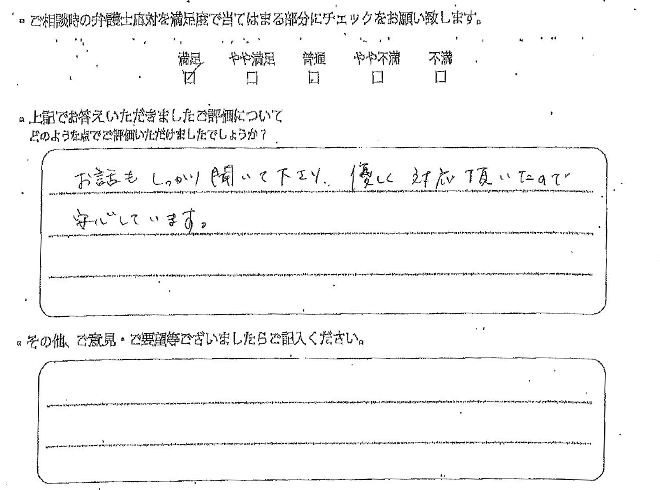 ご相談時の弁護士応対を満足度で当てはまる部分にチェックをお願い致します。
満足 やや満足 普通 やや不満 不満
上記でお答えいただきましたご評価について
どのような点でご評価いただけましたでしょうか？
お話もしっかり聞いて下さり、優しく対応頂いたので
安心しています。
その他、ご意見・ご要望等ございましたらご記入ください。